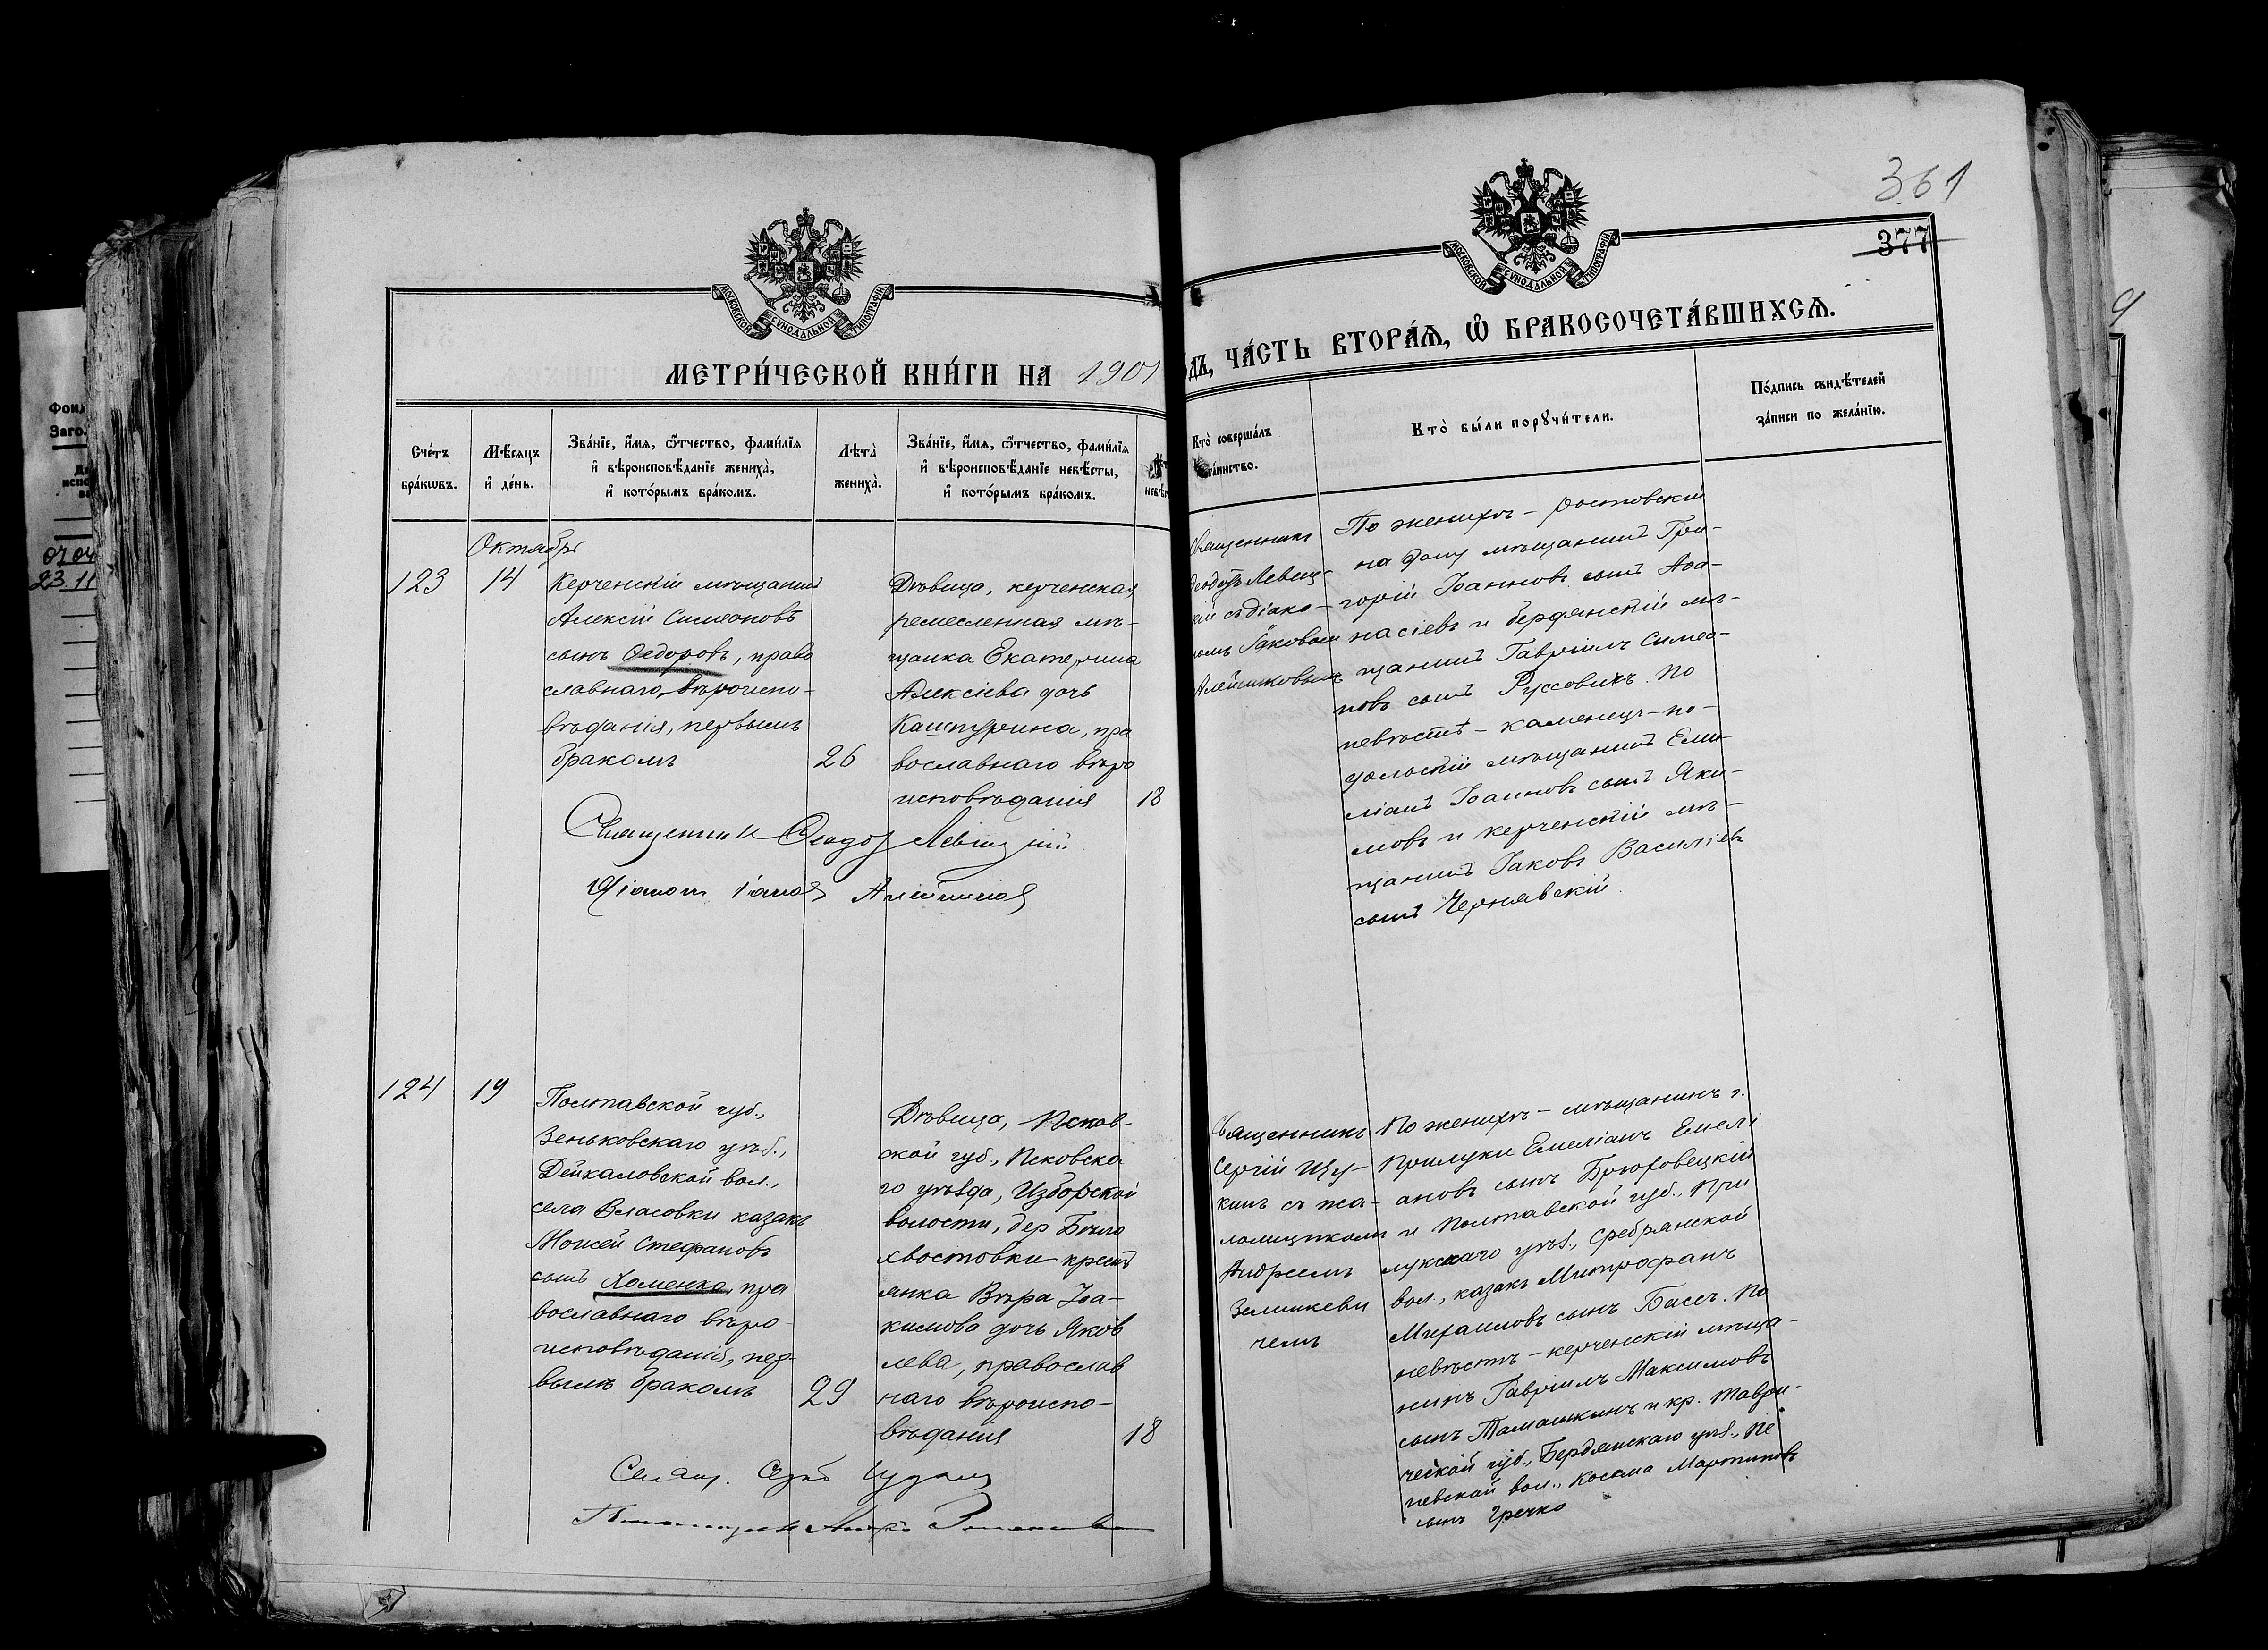 361
377
МОСКОВСКОЙ СѴНОДАЛЬНОЙ ТИПОГРАФІИ
МОСКОВСКОЙ СѴНОДАЛЬНОЙ ТИПОГРАФІИ
МЕТРИ́ЧЕСКОЙ КНИ́ГИ НА 1901
ДЪ, ЧА́СТЬ ВТОРА́Ѧ, Ѡ҆ БРАКОСОЧЕТА́ВШИХСѦ.
Сче́тъ бра́кѡвъ.
Мѣ́сѧцъ и҆ де́нь.
Зва́нїе, и҆́мѧ, ѻ҆́тчество, фами́лїѧ
и҆ вѣроисповѣ́данїе жениха̀,
и҆ кото́рымъ бра́комъ.
Лѣта̀ жениха̀.
Зва́нїе, и҆́мѧ, ѻ҆́тчество, фами́лїѧ
и҆ вѣроисповѣ́данїе невѣ́сты,
и҆ кото́рымъ бра́комъ.
Кто̀ соверша́лъ
та́инство.
Кто̀ бы́ли порꙋчи́тели.
По́дпись свидѣ́телей
за́писи по жела́нїю.
Октябрь
123
14
Керченскій мѣщанинъ
Алексій Симеоновъ
сынъ Ѳедоровъ, право
славнаго вѣроиспо-
вѣданія, первымъ
бракомъ
26
Дѣвица, керченская
ремесленная мѣ-
щанка Екатерина
Алексіева дочь
Каштурина, пра
вославнаго вѣро
исповѣданія
18
Священникъ
Ѳеодоръ Левиц-
кій съ діако-
номъ Іаковомъ
Алейниковымъ
По женихѣ – ростовскій
на Дону мѣщанинъ Гри-
горій Іоанновъ сынъ Аѳа-
насіевъ и бердянскій мѣ-
щанинъ Гавріилъ Симео-
новъ сынъ Руссовичъ. По
невѣстѣ – каменецъ-по-
дольскій мѣщанинъ Еми-
ліанъ Іоанновъ сынъ Яки-
мовъ и керченскій мѣ-
щанинъ Іаковъ Василіевъ
сынъ Чернявскій.
Священникъ Ѳеодоръ Левицкій
Діаконъ Іаковъ Алейниковъ
124
19
Полтавской губ.,
Зеньковскаго уѣз.,
Дейкаловской вол.,
села Власовки казакъ
Моисей Стефановъ
сынъ Хоменко, пра
вославнаго вѣро-
исповѣданія, пер-
вымъ бракомъ
29
Дѣвица, Псков-
ской губ., Псковска
го уѣзда, Изборской
волости, дер. Бѣло
хвостовки крест
янка Вѣра Іоа-
кимова дочь Яков
лева, православ
наго вѣроиспо-
вѣданія
18
Священникъ
Сергій Щу-
кинъ съ пса-
ломщикомъ
Андреемъ
Зелинкеви
чемъ
По женихѣ – мѣщанинъ г.
Прилуки Емеліанъ Емелі
ановъ сынъ Брюховецкій
и Полтавской губ., При
лукскаго уѣз., Сребрянской
вол., казакъ Митрофанъ
Михаиловъ сынъ Басъ. По
невѣстѣ – керченскій мѣща-
нинъ Гавріилъ Максимовъ
сынъ Томашкинъ и кр. Таври-
ческой губ., Бердянскаго уѣз.,
вол., Косьма Мартиновъ
сынъ Гречко